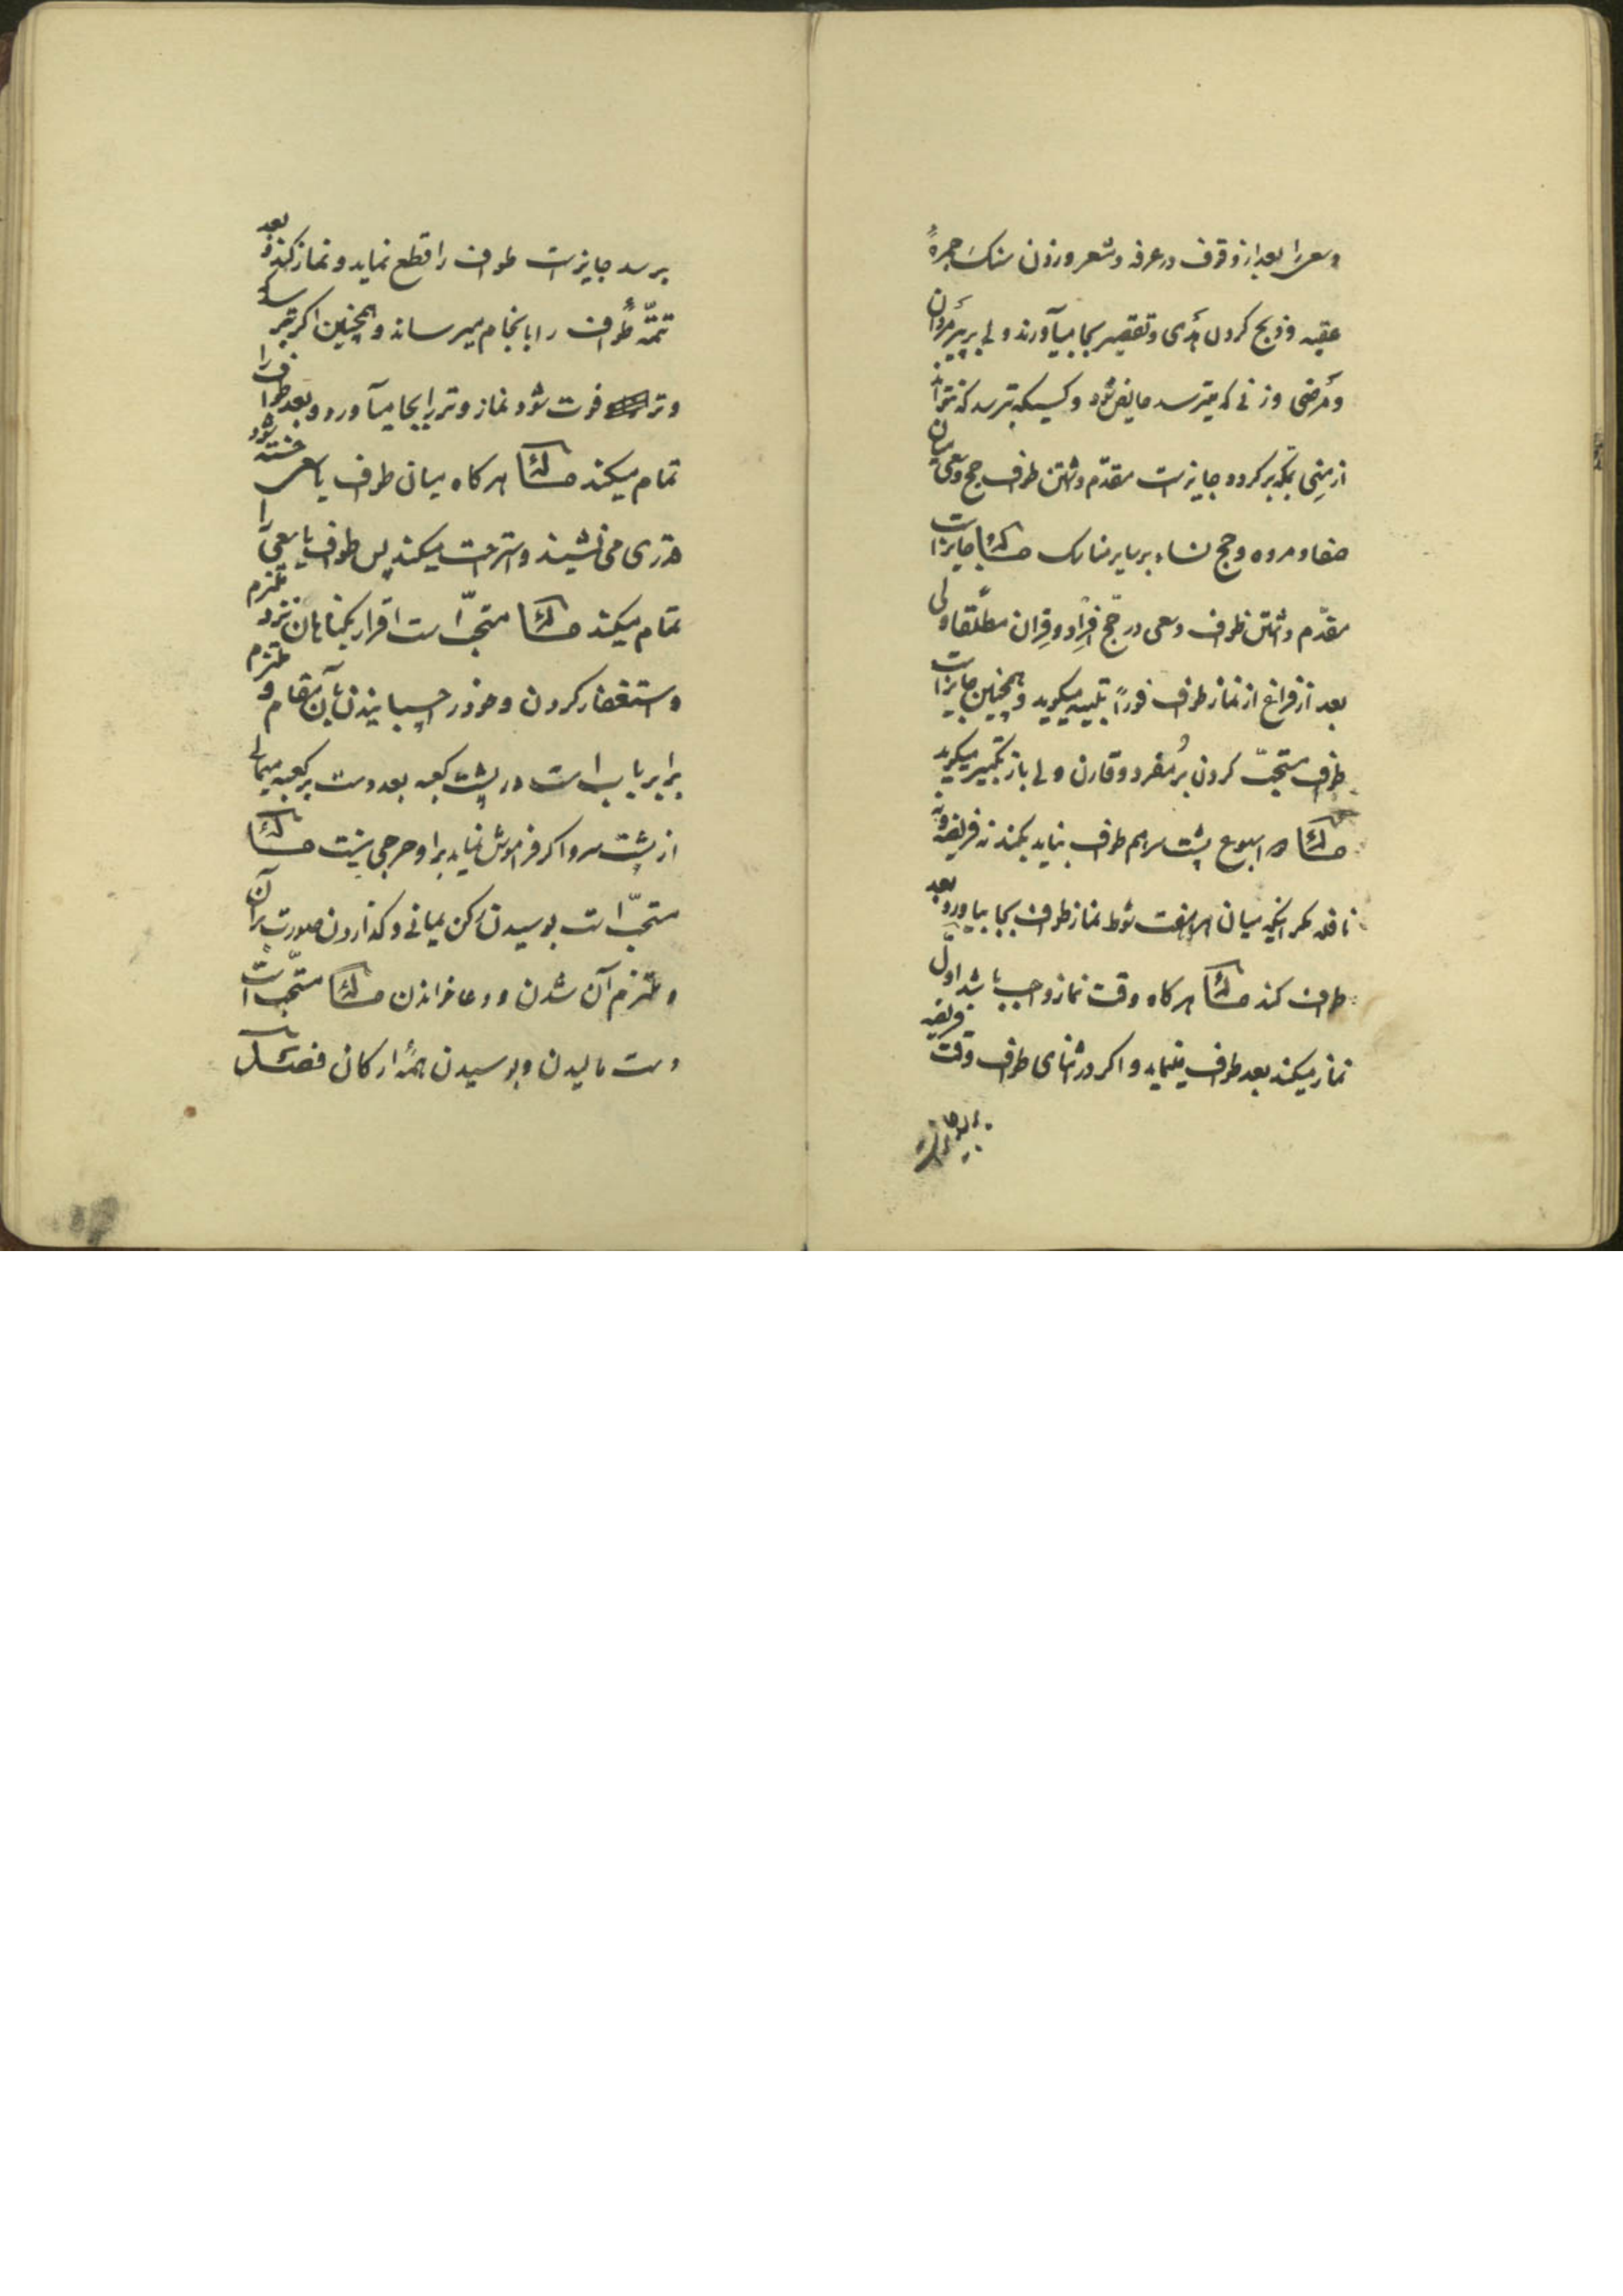 وسعی را بعد از وقوف در عرفه و مشعر و زدن سنک جمرهٔ
عقبه و ذبح کردن هدی و تقصیر بجا میآورند ولی بر پیر مردان
و مرضی و زنی که میترسد حایض شود و کسیکه بترسد که نتواند
از منی بمکه برکردد جایز است مقدّم داشتن طواف حج وسعی میان
صفا و مروه و حج نساء بر سایر مناسک مسئله جایز است
مقدّم داشتن طواف وسعی در حجّ افراد و قران مطلقا ولی
بعد از فراغ از نماز طواف فوراً تلبیه میکوید و همچنین جایز است
طواف مستحبّ کردن بر مفرد و قارن ولی باز تکبیر میکوید
مسئله دو اسبوع پشت سر هم طواف نباید بکند نه فریضه و نه
نافله مکر اینکه میان هر هفت شوط نماز طواف بجا بیاورد و بعد
طواف کند مسئله هر کاه وقت نماز واجب باشد اوّل
نماز میکند بعد طواف مینماید و اکر در اثنای طواف وقت فریضه
برسد جایز است طواف را قطع نماید و نماز کند و بعد
تتمّهٔ طواف را بانجام میرساند و همچنین اکر بترسد که
وتر فوت شود نماز وتر را بجا میآورد و بعد طواف را
تمام میکند مسئله هر کاه میان طواف یا سعی خسته شود
قدری می نشیند و استراحت میکند پس طواف یا سعی را
تمام میکند مسئله مستحبّ است اقرار بکناهان نزد ملتزم
و استغفار کردن و خود را چسبانیدن بآن مقام و ملتزم
برابر باب است در پشت کعبه بعد دست بر کعبه میمالی
از پشت سر و اکر فراموش نماید بر او حرجی نیست مسئله
مستحبّ است بوسیدن رکن یمانی و کذاردن صورت بر آن
و ملتزم آن شدن و دعا خواندن مسئله مستحبّ است
دست مالیدن و بوسیدن همهٔ ارکان فصل